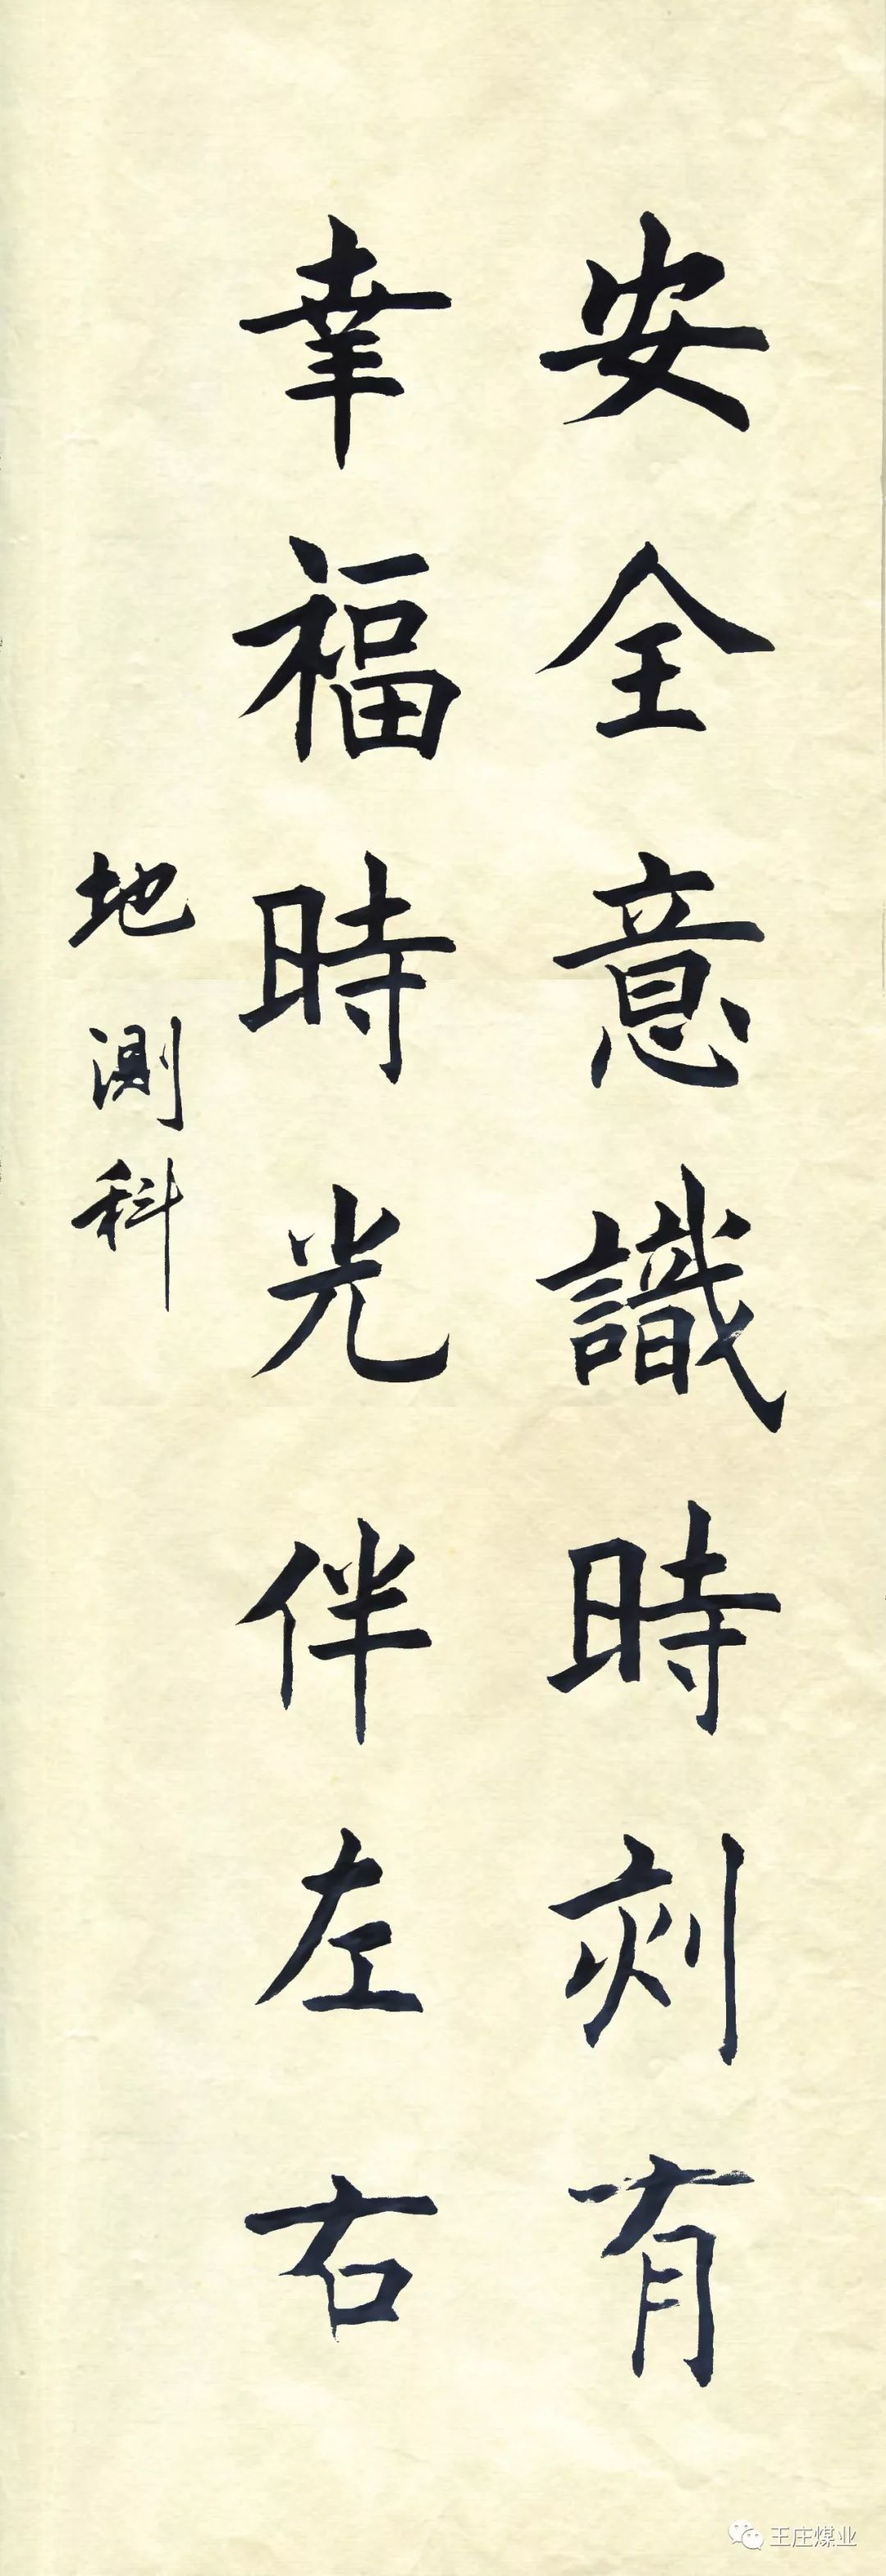 安全意識時刻有
幸福時光伴左右
地测科
王庄煤业